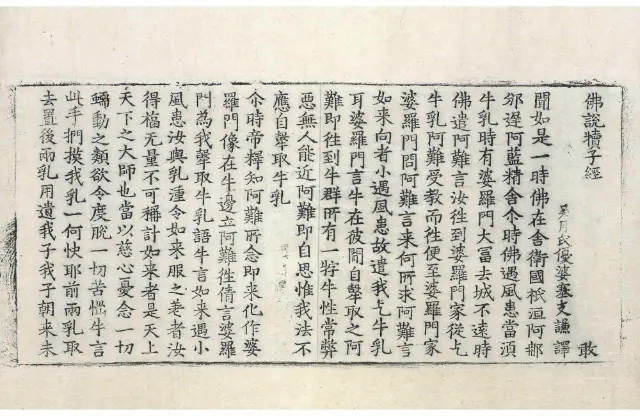 佛說犢子經　敢
吳月氏優婆塞支謙譯
聞如是一時佛在舍衛國祇洹阿那
邠坻阿藍精舍尒時佛遇風患當湏
牛乳時有婆羅門大富去城不遠時
佛遣阿難言汝往到婆羅門家從乞
牛乳阿難受教而往便至婆羅門家
婆羅門問阿難言來何所求阿難言
如來向者小遇風患故遣我乞牛乳
耳婆羅門言牛在彼閒自搫取之阿
難即往到牛群所有一牸牛性常弊
惡無人能近阿難即自思惟我法不
應自搫取牛乳
尒時帝釋知阿難所念即來化作婆
羅門像在牛邊立阿難往倩言婆羅
門為我搫取牛乳語牛言如來遇小
風患汝與乳湩令如來服之差者汝
得福无量不可稱計如來者是天上
天下之大師也當以慈心憂念一切
蠕動之類欲令度脫一切苦惱牛言
此手捫摸我乳一何快耶前兩乳取
去置後兩乳用遺我子我子朝來未